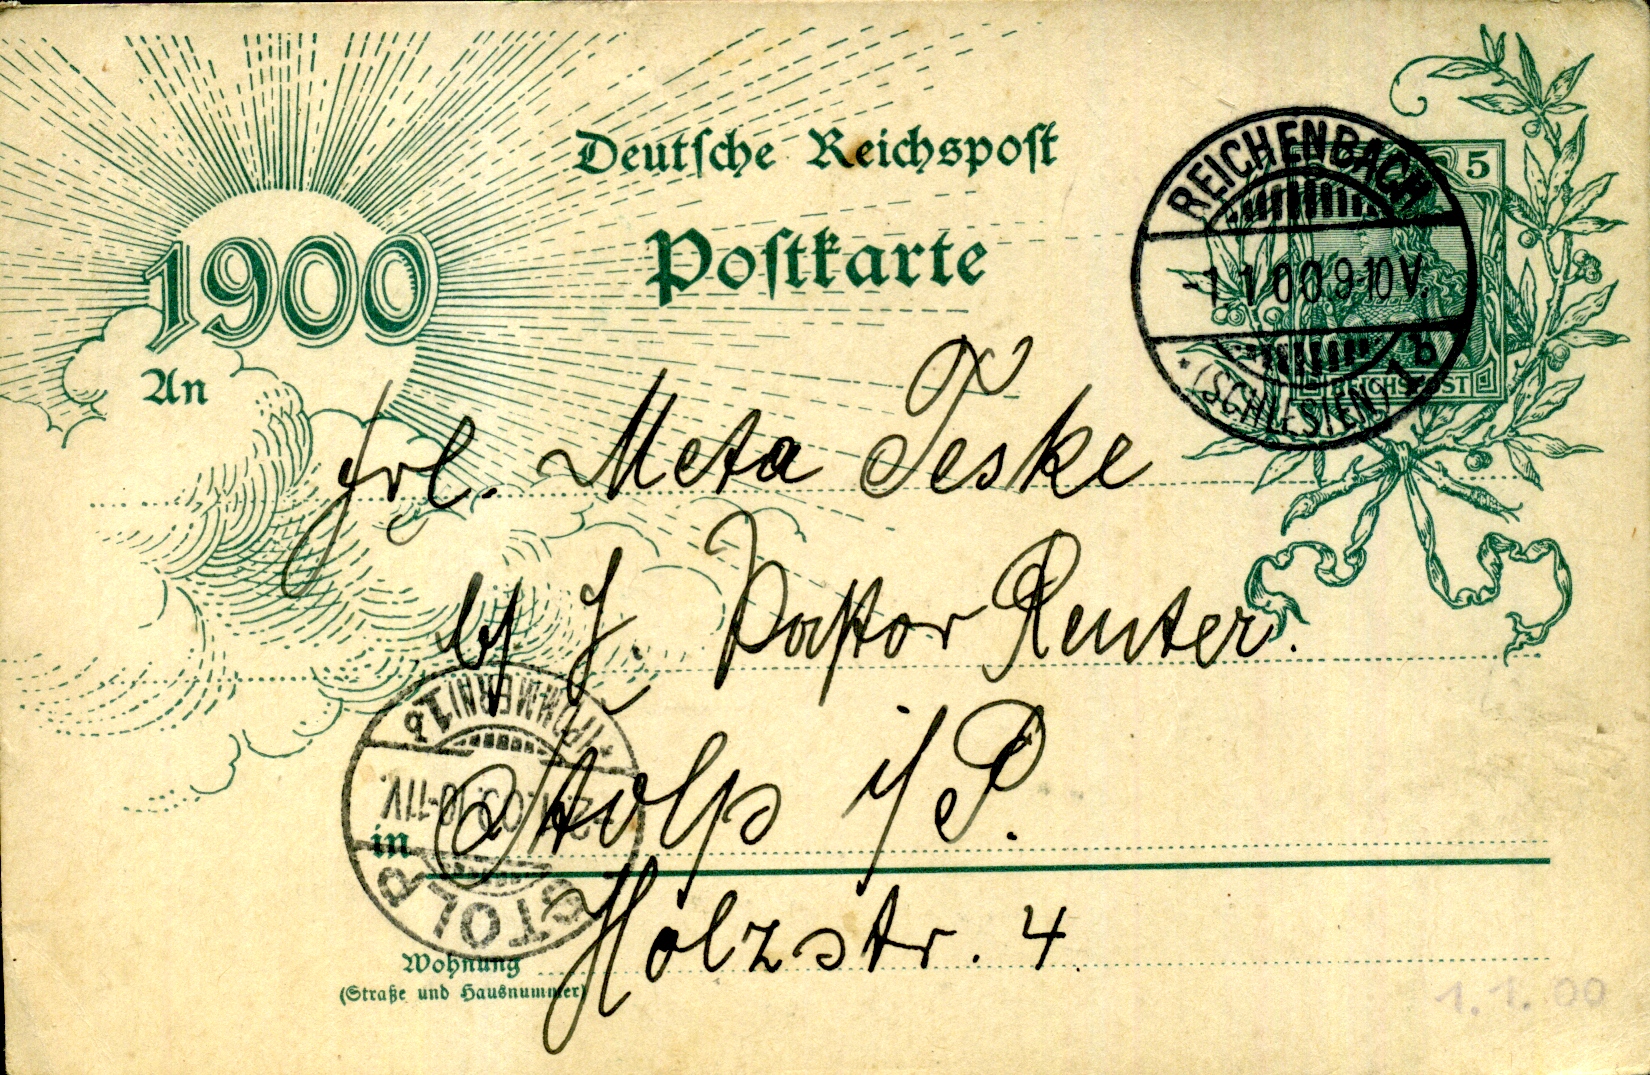 Deutsche Reichspost
Postkarte
1900
REICHENBACH
-1 1 00 9-10V.
* (SCHLESIEN) 1 b
5
REICHSPOST
An
Frl. Meta Teske
b/ H. Pastor Reuter.
* (POMMERN) 1 b
10-11V.
STOLP
in Stolp i/P.
Holzstr. 4.
Wohnung
(Straße und Hausnummer)
1.1.00